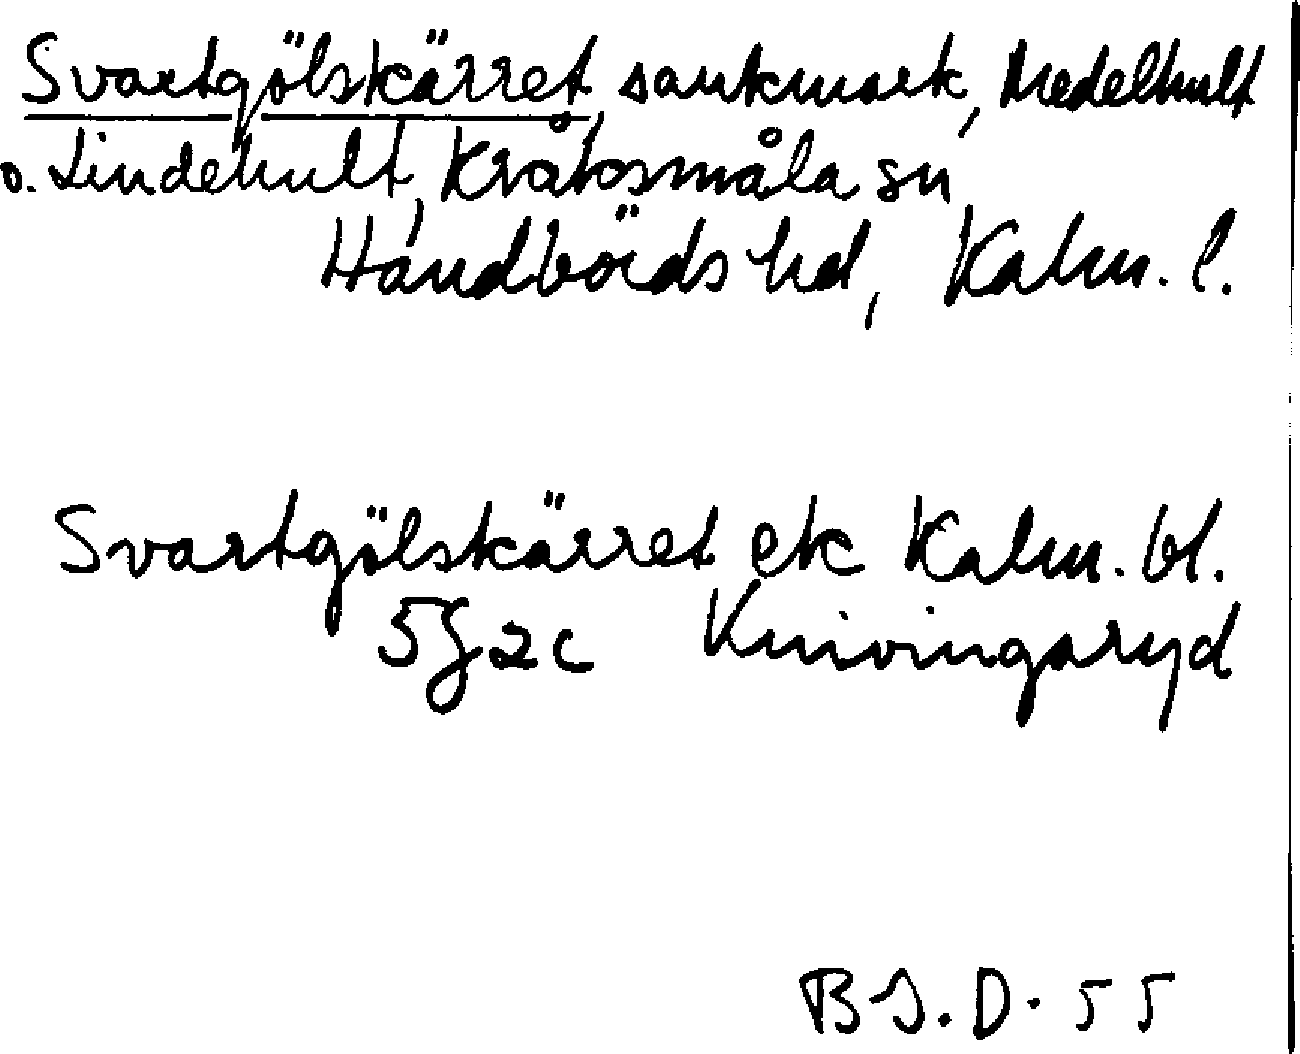 Svartgölskärret, sankmark, Medelhult
o. Lindehult, Kråksmåla sn
Handbörds hd, Kalm. l.
Svartgölskärret ek Kalm. bl.
5G2c Knivingaryd
B-J. D. 55